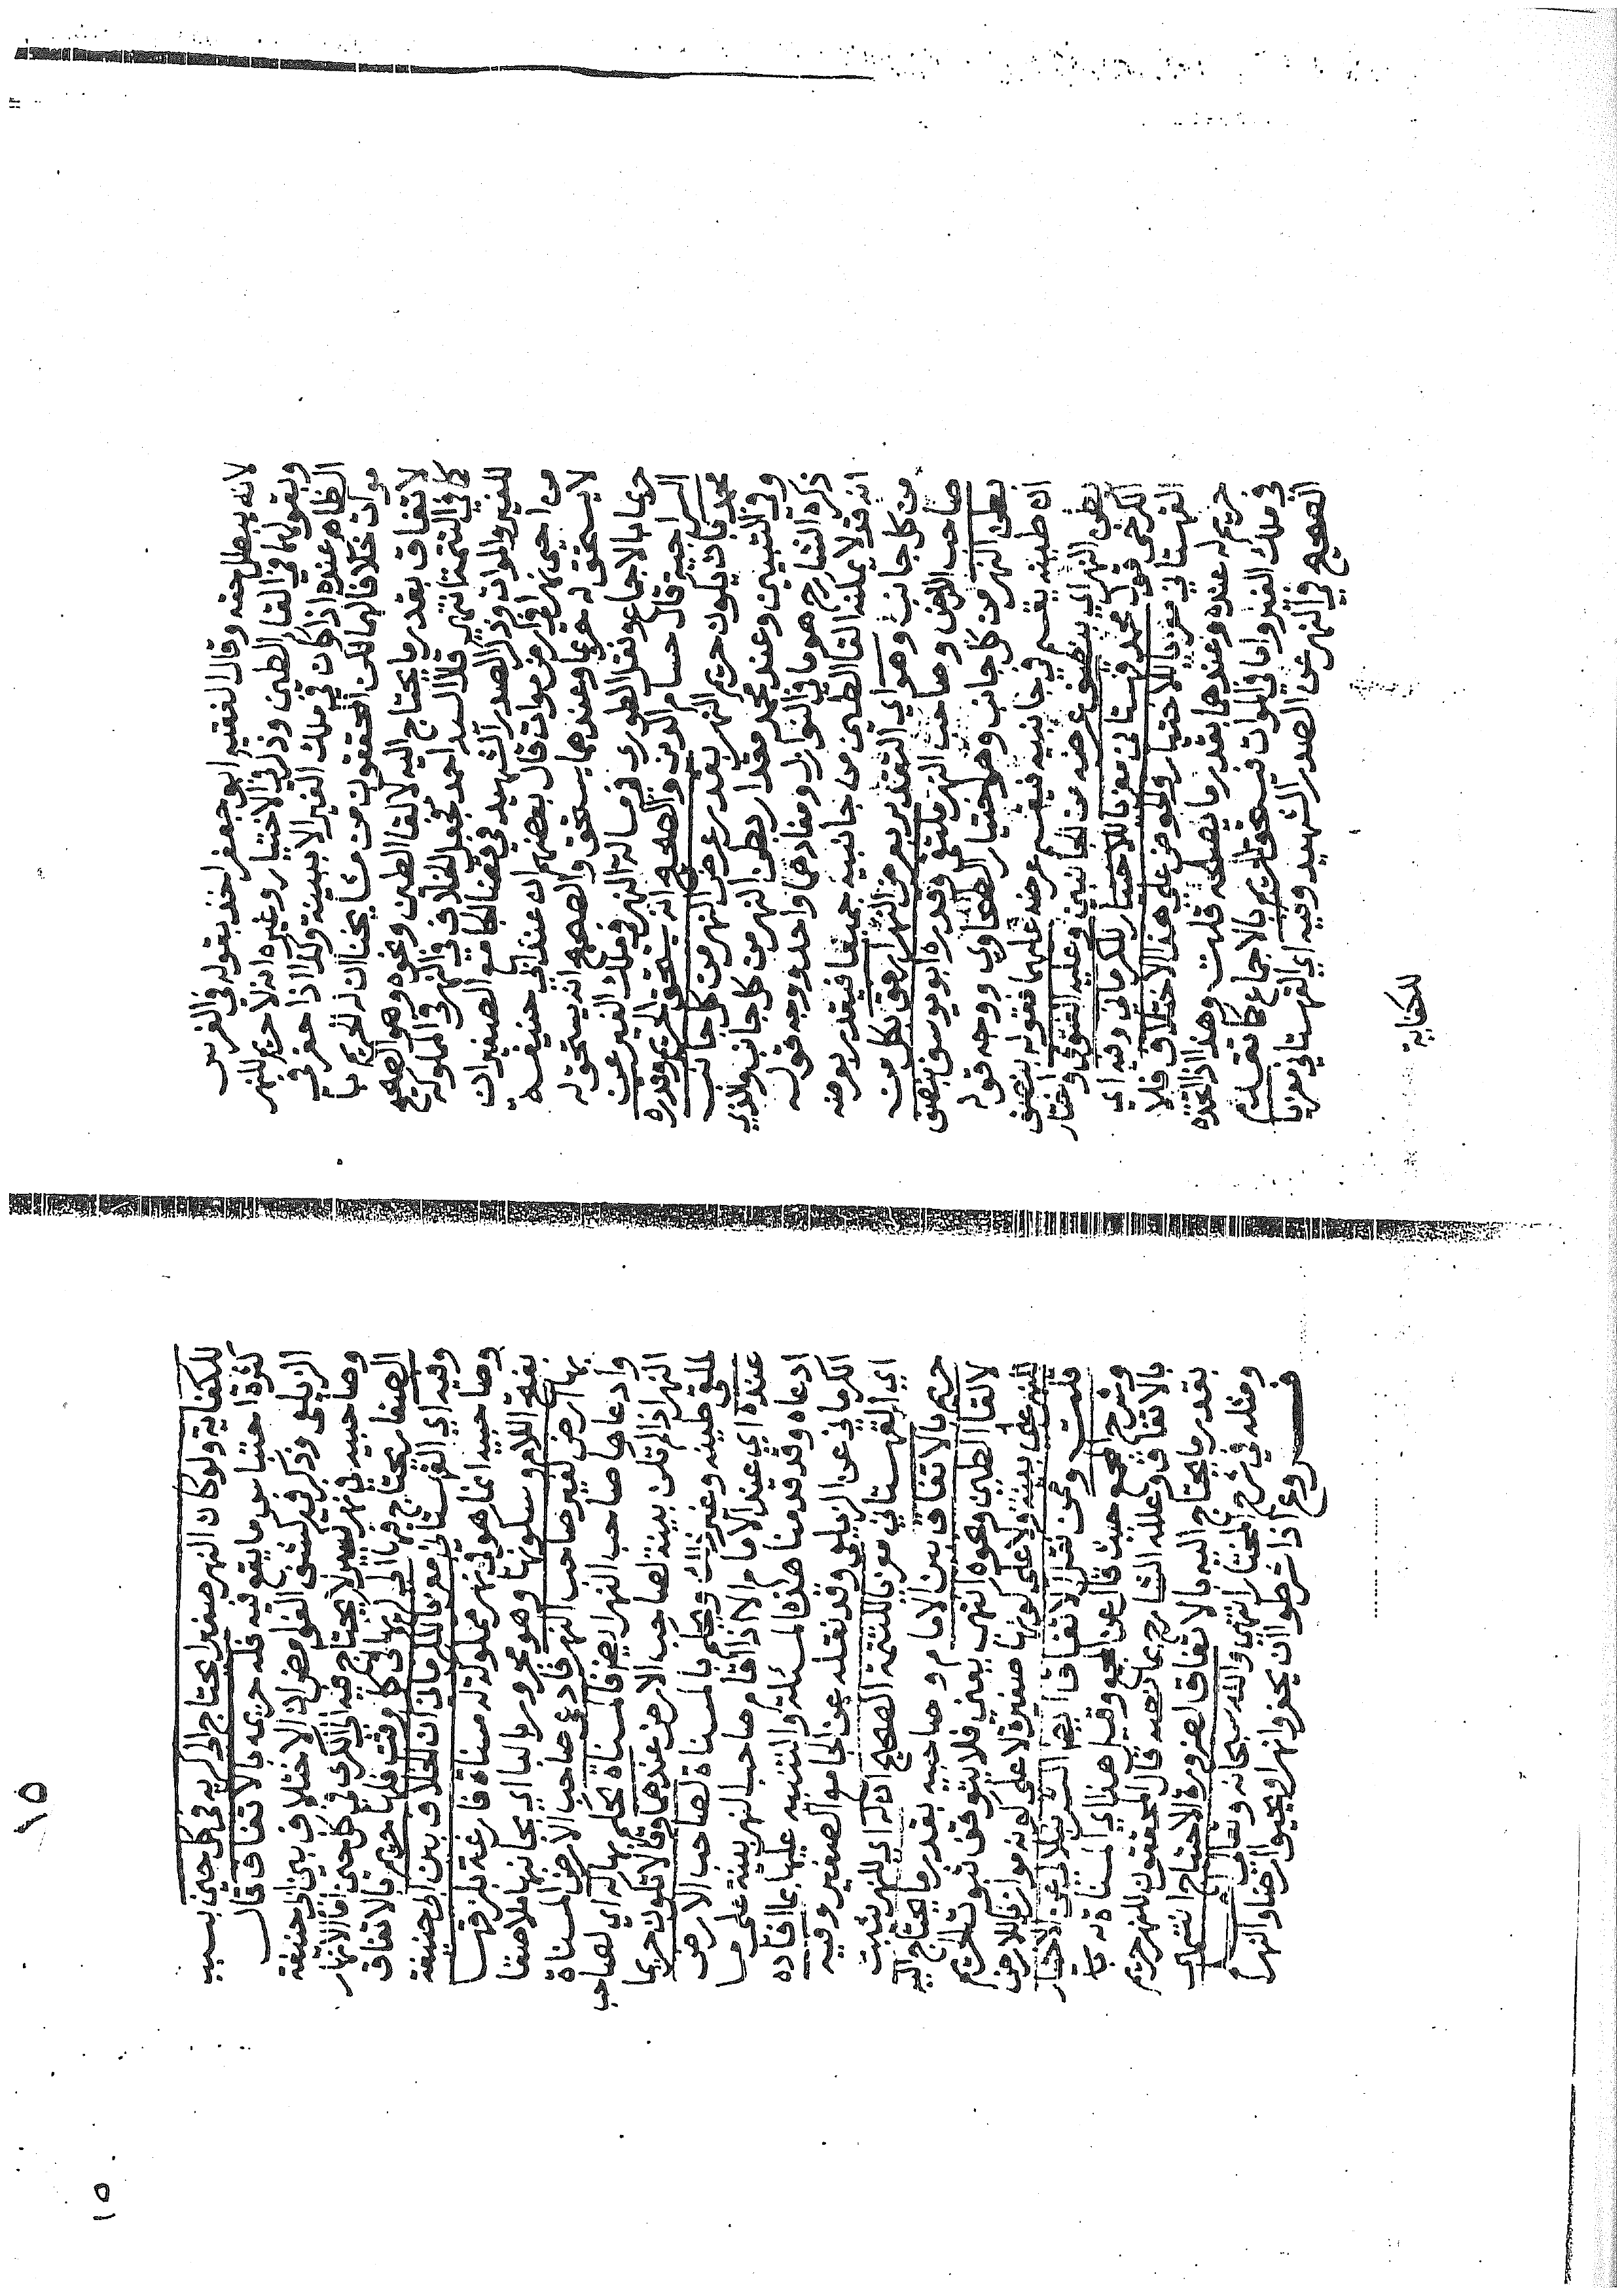 لانه يبطل حقه وقال الفقيه ابو جعفر اخذ بقوله في الغرس
وبقولهما في القا الطين وذكر في الاختيار وغيره انه لا حريم للنهر
الظاهر عنده اذا كان في ملك الغير الا ببينة وكذا اذا حفر في
موات خلافا لهما لكن المحققون من مشايخنا ان له حريما
لاتفاق بقدر ما يحتاج اليه لالقا الطين ونحوه وهو الصحيح
كما في التتمة انتهى قلا السيد احمد فجعل الخلاف في النهر في المملوك
للغير والموات وذكر الصدر الشهيد في قضا الجامع الصغير ان
من احيى نهرا في ارض موات قال بعضهم ان عند ابي حنيفة
لا يستحق له حريما وعندهما يستحق والصحيح انه يستحق له
حريما بالاجماع ونقل الطوري في مسالة النهر في ملك الغير عن
السراجية قال حسام الدين والصحيح انه يستحق الحريم وقدره
محمد بان يكون حريم النهر بقدر عرض النهر من كل جانب
وفي التبيين وعند محمد مقدار بطن النهر من كل جانب والذي
ذكره الشارح هو ما في النوازل ومفادهما واحد ووجه قوله
انه قد لا يمكنه القا الطين من جانبيه جميعا فيقدر بعرضه
من كل جانب وهو اي التقدير بعرض النهر ارفق بكل من
صاحب الارض وصاحب النهر ملتقى وقدره ابو يوسف بنصف
بطن النهر من كل جانب وهو اختيار الطحاوي ووجه قوله
ان طينه يقسم في جانبيه فيقسم عرضه عليهما فقوله بنصف
بطن النهر اي بنصف عرضه من الجانبين وعليه الفتوى واختار
الكرخي قول محمد قهستاني معزيا للاختيار للكرماني وفيه اي
القهستاني معزيا للاختيار والحوض على هذا الاختلاف فلا
حريم له عنده وعندهما بقدر ما يصلحه قلت وهذا اذا اتخذه
في ملك الغير واما في الموات فيستحق الحريم بالاجماع كما تقدم
الصحيح في النهر عن الصدر الشهيد وفيه اي القهستاني معزيا
للكفاية
للكفاية ولو كان النهر صغيرا يحتاج الى كريه في كل حين بسبب
كثرة احتباس ما يقع فيه فله حريم بالاتفاق قال
الزيلعي وذكر في كشف الغوامض ان الاختلاف بين ابي حنيفة
وصاحبيه في نهر كبير لا يحتاج فيه الى الكري في كل حين اما الانهار
الصغار يحتاج فيها الى كريها في كل وقت فلها حريم بالاتفاق
وفيه اي القهستاني معزيا للكرماني ان الخلاف بين ابي حنيفة
وصاحبيه انما هو في نهر مملوك له مسناة فارغة بلزقها
بفتح اللام وسكونها وهو مجرور بالبا اي بجانبها ملاصقا
بها ارض لغير صاحب النهر فادعى صاحب الارض المسناة
وادعاها صاحب النهر ايضا فالمسناة يحكم بها له اي لصاحب
النهر اذا لم تكن بينة لصاحب الارض عندهما وقالا تكون حريما
لملقى طينه وغير ذلك ويحكم بالمسناة لصاحب الارض
عنده اي عند الامام الا اذا اقام صاحب النهر بينة على ما
ادعاه وقد قدمنا هذه المسئلة والتنبيه عليها بما افاده
الكرماني عن الزيلعي وقد نقله عن الجامع الصغير وفيه
اي القهستاني معزيا للتتمة الصحيح انه له اي للنهر يثبت
حريم بالاتفاق بين الامام وصاحبيه بقدر ما يحتاج اليه
لالقا الطين ونحوه انتهى يعني فلا يتوقف ثبوت الحريم
للنهر على بينة ولا على كونها صغيرة لا على كونه موازيا للارض
قلت وممن نقل الاتفاق ايضا الشرنبلالي عن الاختيار
وشرح المجمع حيث قال عن المجمع وقيل هذا اي المسناة له بما
بالاتفاق وعلله الشارح بما نصه قال المحققون للنهر حريم
بقدر ما يحتاج اليه بالاتفاق لضرورة الاحتياج انتهى
ومثله في شرح المختار انتهى والله سبحانه وتعالى اعلم
فــــروع اذا شرطوا ان يحفروا نهرا ويحيوا ارضا والنهر
١٥
١٥